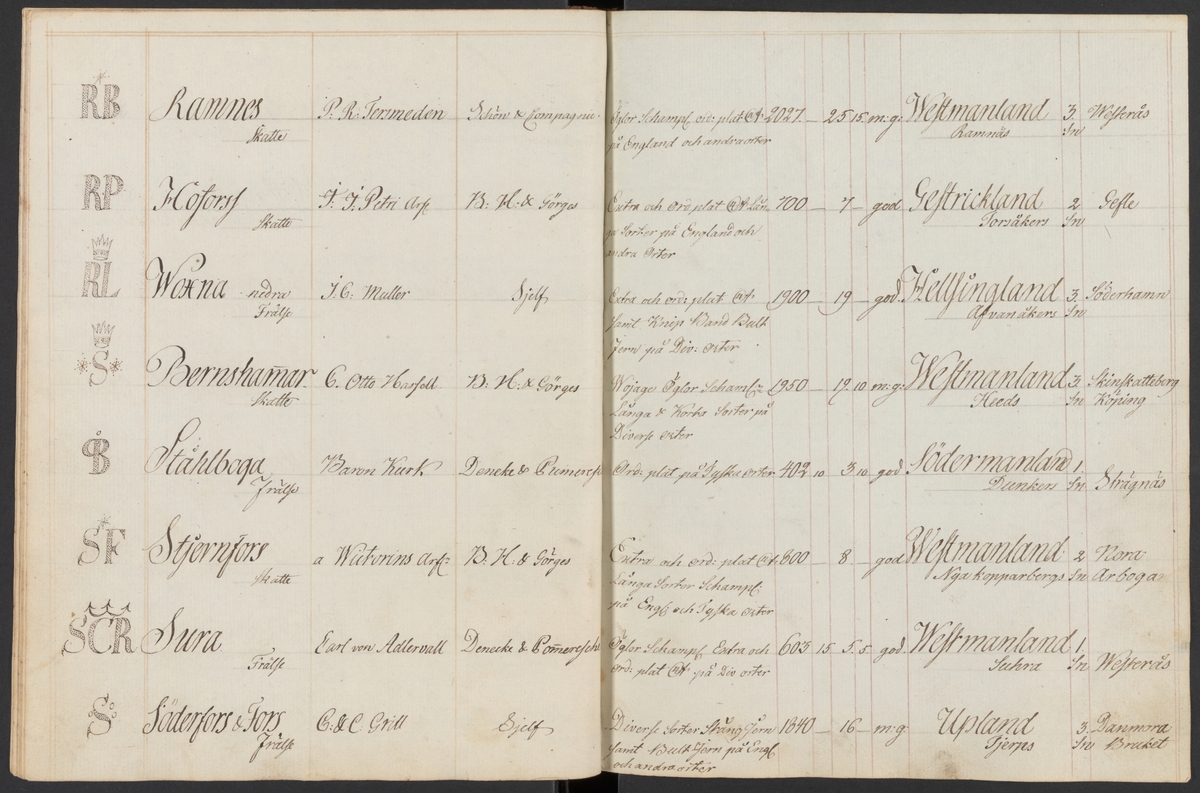 RB Ramnes P. R. Termeden Schön & Compagnie Öglor Schampl. ord: plat 2027 — 25 15 m: g: Westmanland 3. Westerås
Skatte på England och andra orter Ramnäs Sn
RP Höforss J. J. Petri Arf: B: H: & Görges Extra och Ord: plat 700 — 7 — god. Gestrickland 2 Gefle
Skatte Sorter på England och Torsåkers Sn
andra Orter
RL Woxna nedra J. C. Muller Sjelf Extra och ord: plat 1900 — 19 — god. Hellsingland 3. Söderhamn
Frälse samt Knip Band Bult Alfvanåkers Sn
Jern på Div: orter
S Bernshamar C. Otto Harfell B: H: & Görges Wojage Öglor Schampl: 1950 — 19. 10 m: g: Westmanland 3 Skinskatteberg
Skatte Långa & Korta Sorter på Heeds Sn Köping
Diverse orter
B Ståhlboga Baron Kurk Deneke & Pumeresch Ord: plat på Tyska orter 402 10 3 10 god Södermanland 1.
Frälse Dunkers Sn Strägnäs
SF Stjernfors a Wäterins Arf: B. H. & Görges Extra och ord: plat 600 — 8 — god Westmanland 2 Nora
Skatte Långa Sorter Schampl. Nya kopparbergs Sn Arboga
på Engl och Tyska orter
SCR Sura Carl von Adlervall Deneke & Pomeresche Öglor Schampl Extra och 603 15 5. 5 god Westmanland 1.
Frälse ord: plat på Div orter Suhra Sn Westerås
S Söderfors & Fors C: & C Grill Sjelf Diverse Sorter Stång Jern 1840 — 16 — m: g Upland 3. Danmora
Frälse samt Bult Jern på Engl Tjerps Sn Bruket
och andra orter